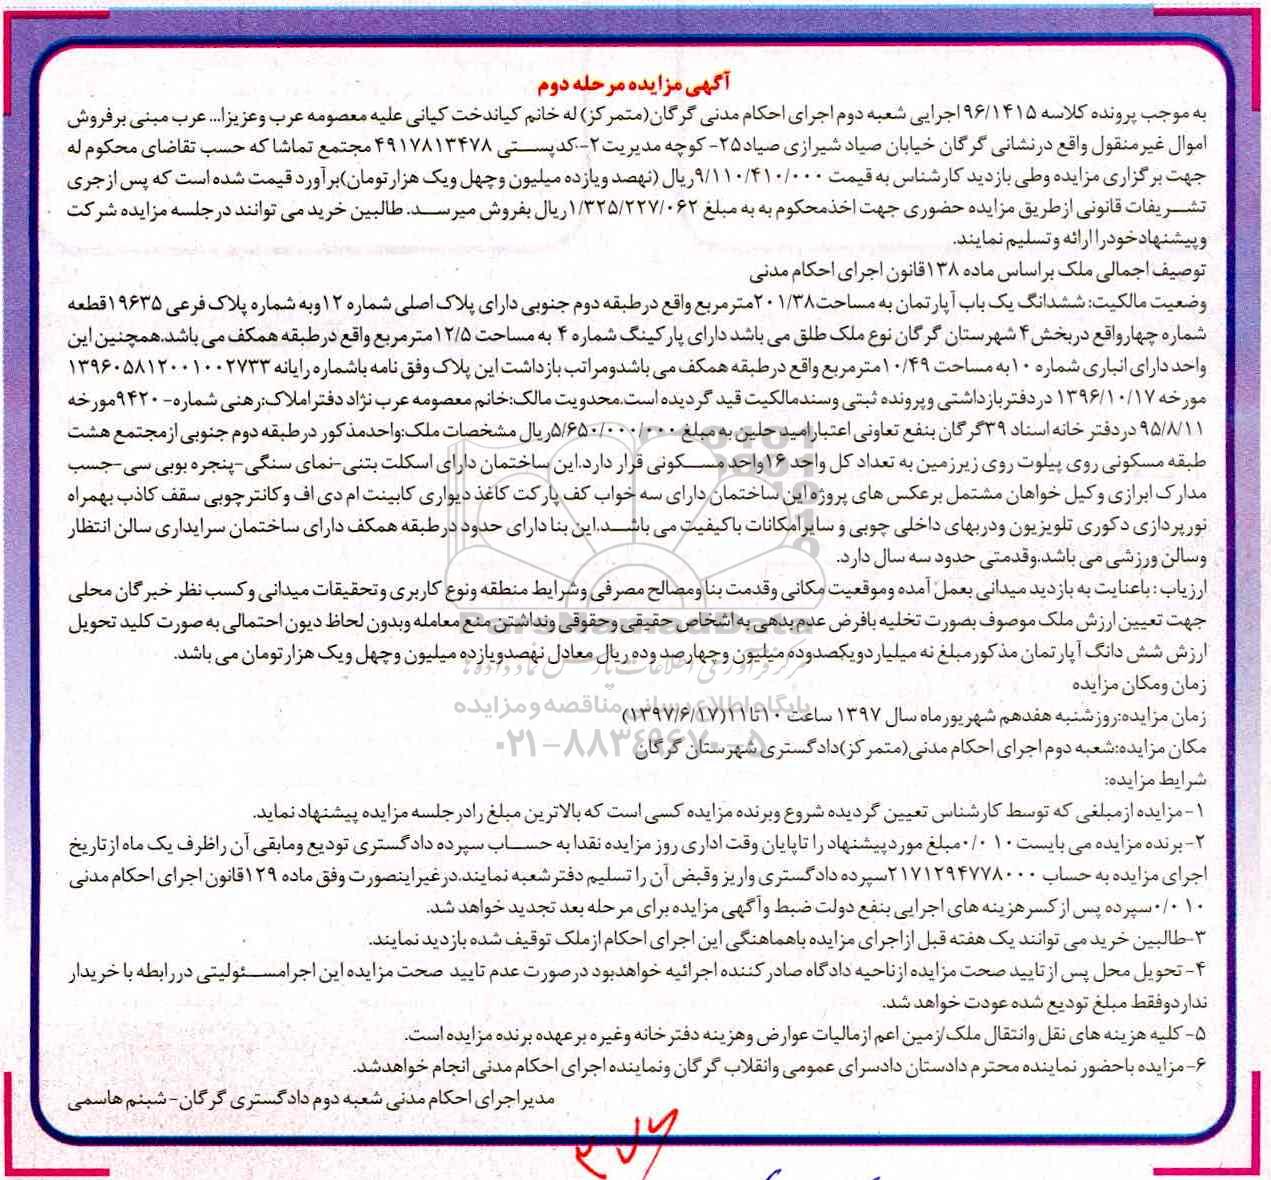 آگهی مزایده مرحله دوم
به موجب پرونده کلاسه ۹۶/۱۴۱۵ اجرایی شعبه دوم اجرای احکام مدنی گرگان(متمرکز) له خانم کیاندخت کیانی علیه معصومه عرب وعزیزا... عرب مبنی برفروش
اموال غیرمنقول واقع درنشانی گرگان خیابان صیاد شیرازی صیاد۲۵- کوچه مدیریت۲-کدپستی ۴۹۱۷۸۱۳۴۷۸ مجتمع تماشا که حسب تقاضای محکوم له
جهت برگزاری مزایده وطی بازدید کارشناس به قیمت ۹/۱۱۰/۴۱۰/۰۰۰ریال (نهصد ویازده میلیون وچهل ویک هزارتومان)برآورد قیمت شده است که پس ازجری
تشریفات قانونی ازطریق مزایده حضوری جهت اخذمحکوم به به مبلغ ۱/۳۲۵/۲۲۷/۰۶۲ریال بفروش میرسد. طالبین خرید می توانند درجلسه مزایده شرکت
وپیشنهادخودرا ارائه وتسلیم نمایند.
توصیف اجمالی ملک براساس ماده ۱۳۸قانون اجرای احکام مدنی
وضعیت مالکیت: ششدانگ یک باب آپارتمان به مساحت۲۰۱/۳۸مترمربع واقع درطبقه دوم جنوبی دارای پلاک اصلی شماره ۱۲وبه شماره پلاک فرعی ۱۹۶۳۵قطعه
شماره چهارواقع دربخش۴ شهرستان گرگان نوع ملک طلق می باشد دارای پارکینگ شماره ۴ به مساحت ۱۲/۵مترمربع واقع درطبقه همکف می باشد.همچنین این
واحد دارای انباری شماره ۱۰به مساحت ۱۰/۴۹مترمربع واقع درطبقه همکف می باشدومراتب بازداشت این پلاک وفق نامه باشماره رایانه ۱۳۹۶۰۵۸۱۲۰۰۱۰۰۲۷۳۳
مورخه ۱۳۹۶/۱۰/۱۷ دردفتربازداشتی وپرونده ثبتی وسندمالکیت قید گردیده است.محدویت مالک:خانم معصومه عرب نژاد دفتراملاک:رهنی شماره- ۹۴۲۰مورخه
۹۵/۸/۱۱ دردفترخانه اسناد ۳۹گرگان بنفع تعاونی اعتبارامید جلین به مبلغ ۵/۶۵۰/۰۰۰/۰۰۰ریال مشخصات ملک:واحدمذکور درطبقه دوم جنوبی ازمجتمع هشت
طبقه مسکونی روی پیلوت روی زیرزمین به تعداد کل واحد ۱۶واحد مسکونی قرار دارد.این ساختمان دارای اسکلت بتنی-نمای سنگی-پنجره یوپی سی-جسب
مدارک ابرازی وکیل خواهان مشتمل برعکس های پروژه این ساختمان دارای سه خواب کف پارکت کاغذ دیواری کابینت ام دی اف وکانترچوبی سقف کاذب بهمراه
نورپردازی دکوری تلویزیون ودربهای داخلی چوبی و سایرامکانات باکیفیت می باشد.این بنا دارای حدود درطبقه همکف دارای ساختمان سرایداری سالن انتظار
وسالن ورزشی می باشد.وقدمتی حدود سه سال دارد.
ارزیاب : باعنایت به بازدید میدانی بعمل آمده وموقعیت مکانی وقدمت بنا ومصالح مصرفی وشرایط منطقه ونوع کاربری وتحقیقات میدانی وکسب نظر خبرگان محلی
جهت تعیین ارزش ملک موصوف بصورت تخلیه بافرض عدم بدهی به اشخاص حقیقی وحقوقی ونداشتن منع معامله وبدون لحاظ دیون احتمالی به صورت کلید تحویل
ارزش شش دانگ آپارتمان مذکورمبلغ نه میلیاردویکصدوده میلیون وچهارصد وده ریال معادل نهصدویازده میلیون وچهل ویک هزارتومان می باشد.
زمان ومکان مزایده
زمان مزایده:روزشنبه هفدهم شهریورماه سال ۱۳۹۷ ساعت ۱۰تا۱۱(۱۳۹۷/۶/۱۷)
مکان مزایده:شعبه دوم اجرای احکام مدنی(متمرکز)دادگستری شهرستان گرگان
شرایط مزایده:
۱-مزایده ازمبلغی که توسط کارشناس تعیین گردیده شروع وبرنده مزایده کسی است که بالاترین مبلغ رادرجلسه مزایده پیشنهاد نماید.
۲-برنده مزایده می بایست۱۰ ۰/۰مبلغ موردپیشنهاد را تاپایان وقت اداری روز مزایده نقدا به حساب سپرده دادگستری تودیع ومابقی آن راظرف یک ماه ازتاریخ
اجرای مزایده به حساب ۲۱۷۱۲۹۴۷۷۸۰۰۰سپرده دادگستری واریز وقبض آن را تسلیم دفترشعبه نمایند.درغیراینصورت وفق ماده ۱۲۹قانون اجرای احکام مدنی
۱۰ ۰/۰سپرده پس ازکسرهزینه های اجرایی بنفع دولت ضبط وآگهی مزایده برای مرحله بعد تجدید خواهد شد.
۳-طالبین خرید می توانند یک هفته قبل ازاجرای مزایده باهماهنگی این اجرای احکام ازملک توقیف شده بازدید نمایند.
۴- تحویل محل پس ازتایید صحت مزایده ازناحیه دادگاه صادرکننده اجرائیه خواهدبود درصورت عدم تایید صحت مزایده این اجرامسئولیتی دررابطه با خریدار
نداردوفقط مبلغ تودیع شده عودت خواهد شد.
۵- کلیه هزینه های نقل وانتقال ملک/زمین اعم ازمالیات عوارض وهزینه دفترخانه وغیره برعهده برنده مزایده است.
۶-مزایده باحضور نماینده محترم دادستان دادسرای عمومی وانقلاب گرگان ونماینده اجرای احکام مدنی انجام خواهدشد.
مدیراجرای احکام مدنی شعبه دوم دادگستری گرگان- شبنم هاسمی
ParsNamadData
پایگاه اطلاع رسانی مناقصه و مزایده
۰۲۱-۸۸۳۴۹۶۷۰-۵